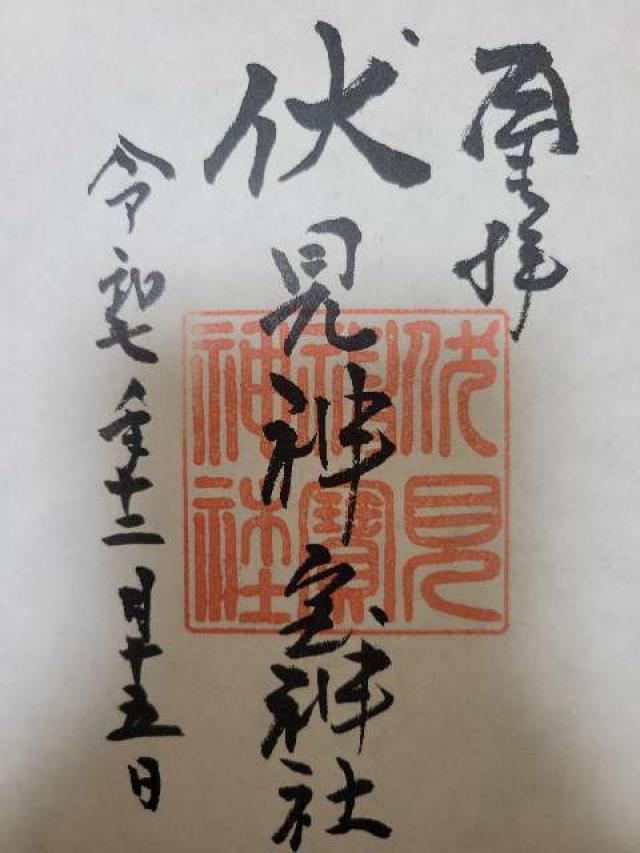 奉拝
伏見神宝神社
伏見神寶神社
令和七年十二月十五日